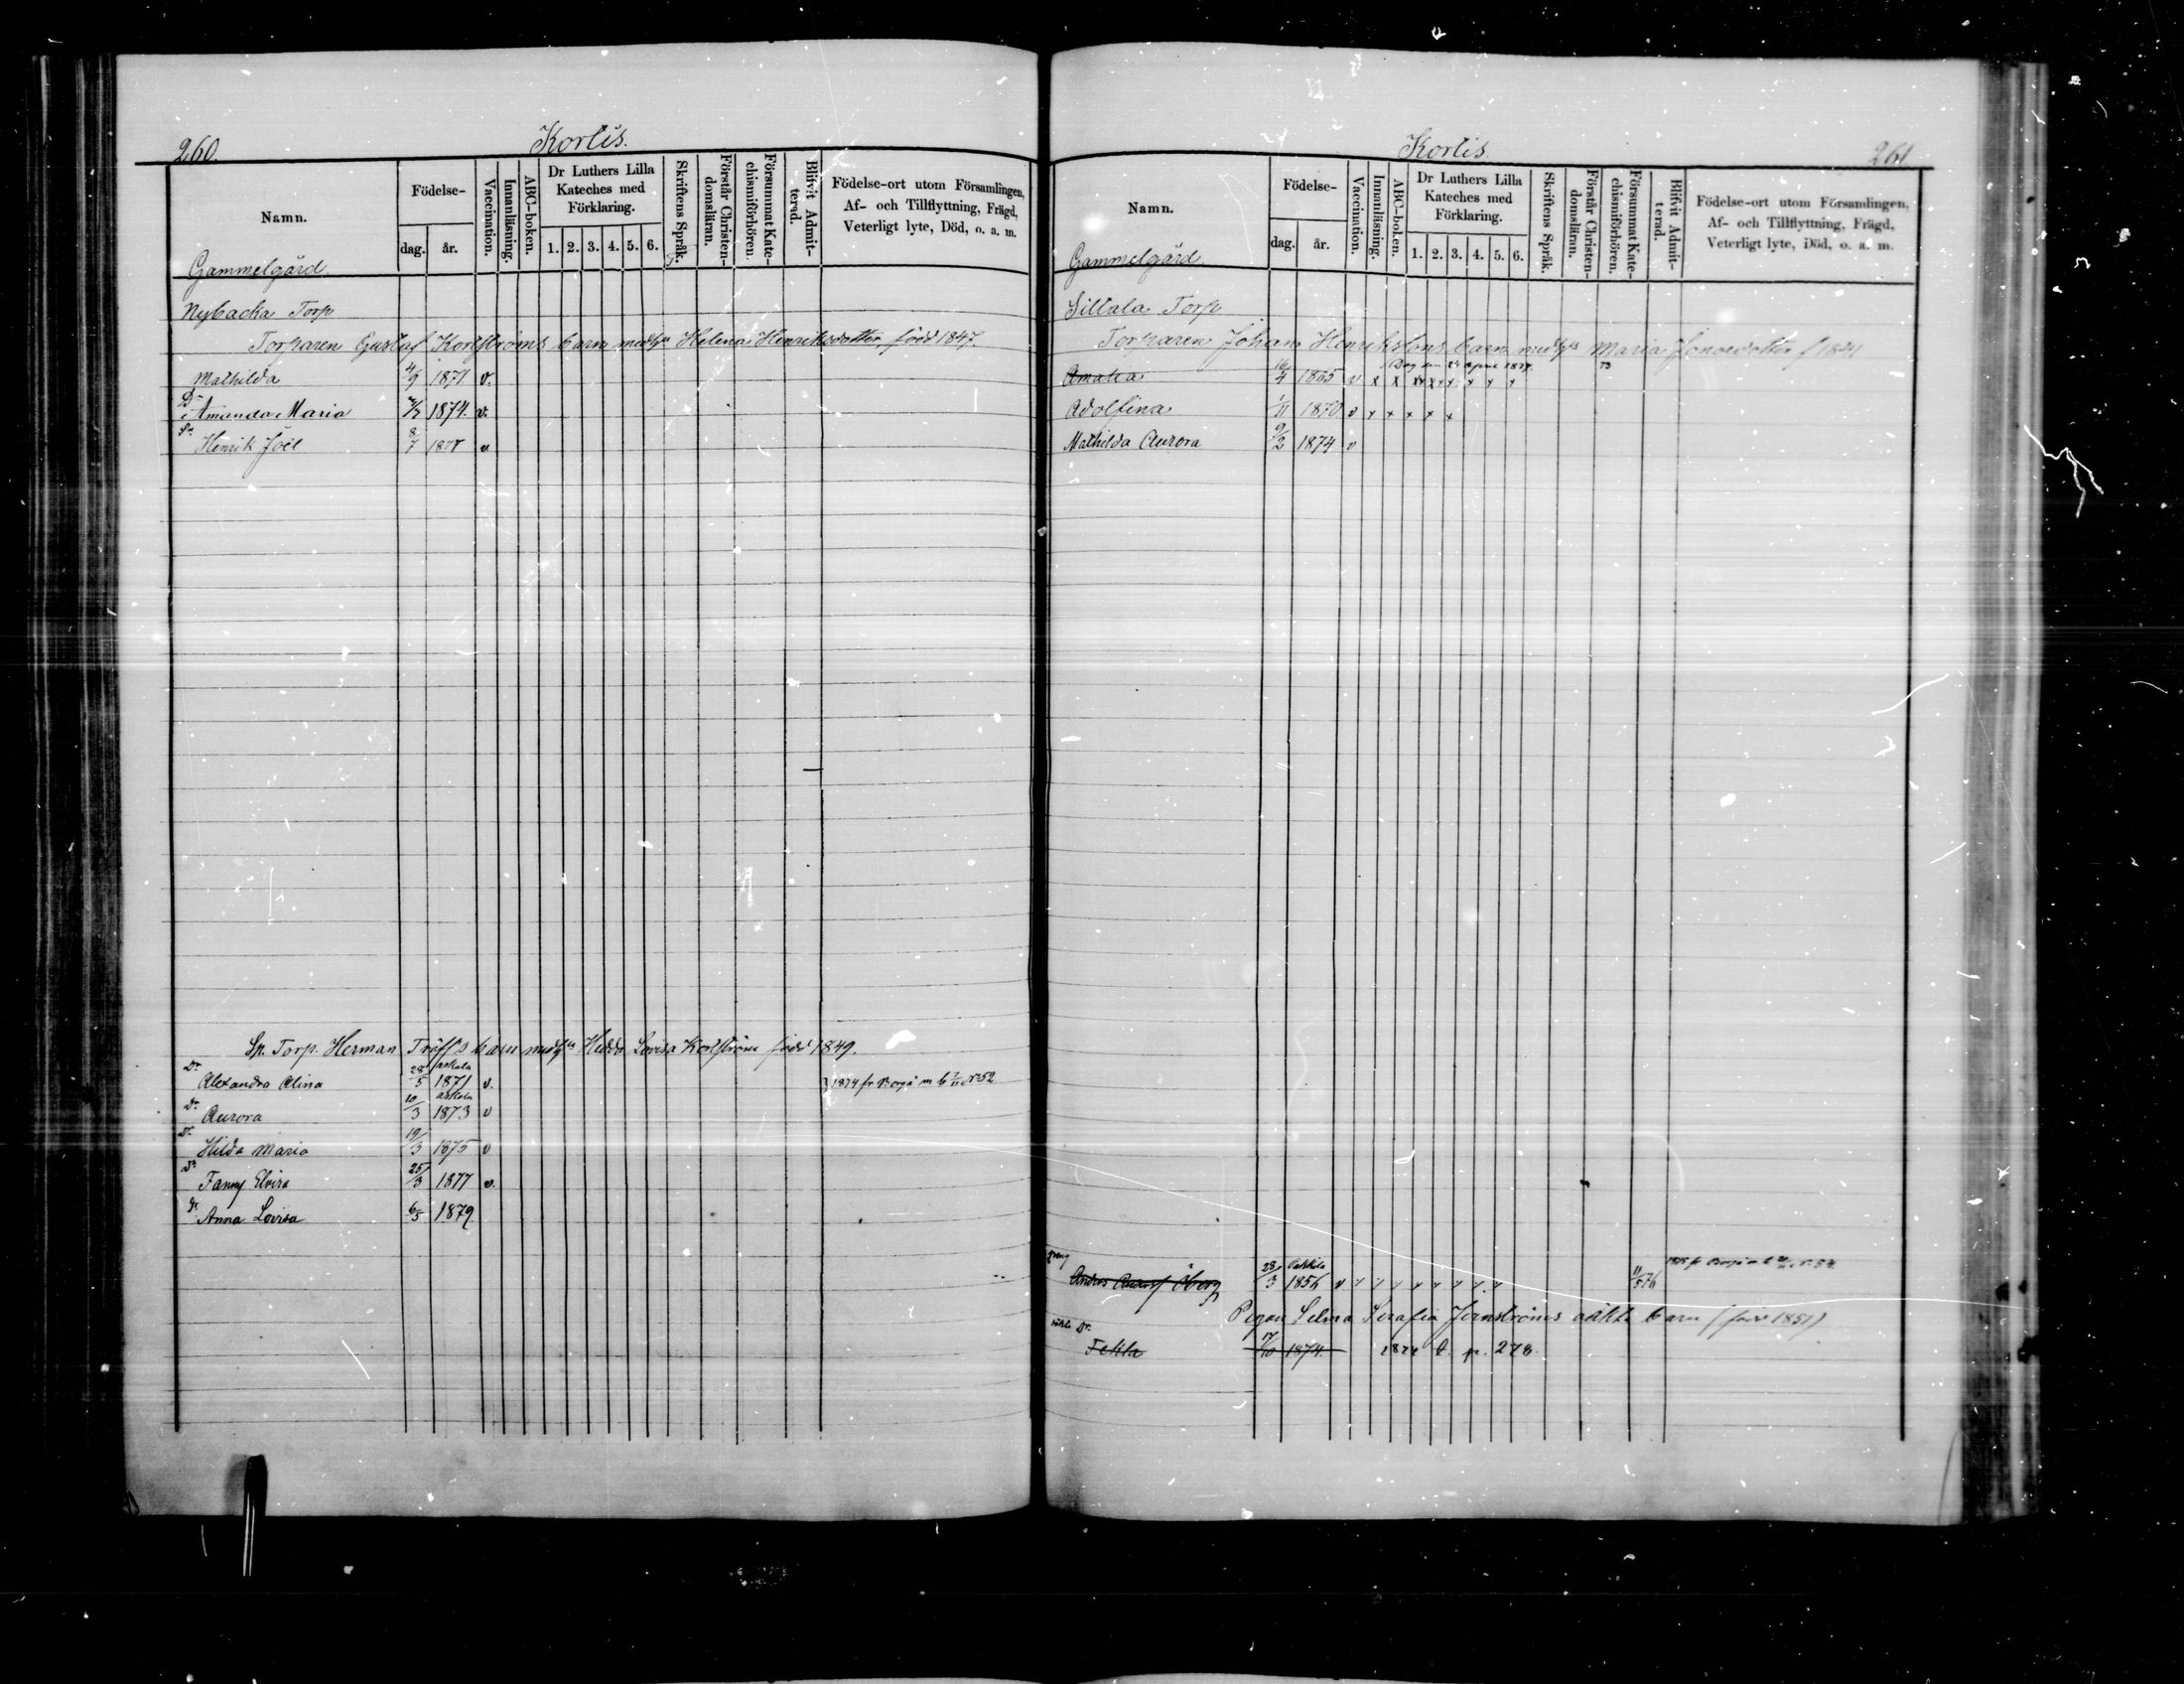 260.
Kortis.
Namn.
Födelse-
dag. år.
Vaccination.
Innanläsning.
ABC-boken.
Dr Luthers Lilla
Kateches med
Förklaring.
1. 2. 3. 4. 5. 6.
Skriftens Språk.
Förstår Christen-
domsläran.
Försummat Kate-
chismiförhören.
Blifvit Admit-
terad.
Födelse-ort utom Församlingen,
Af- och Tillflyttning, Frägd,
Veterligt lyte, Död, o. a. m.
Gammelgård
Nybacka Torp
Torparen Gustaf Korlströms barn med h: Helena Henriksdotter född 1847.
Mathilda 4/9 1871 v.
Dr
Amanda Maria 1874. v.
Sn
Henrik Joel 8/7 v
Sp. Torp. Herman Träff's barn med Hedda Lovisa Korlström född 1849.
Dr Askola
Alexandra Alina 28/5 1871 v. 1874 fr Borgå m b N 52
Dr Askola
Aurora 10/3 1873 v
Dr
Hilda Maria 19/3 1875 v
Dr
Fanny Elvira 25/3 1877 v.
Dr
Anna Lovisa 6/5 1879
Kortis.
261
Namn.
Födelse-
dag. år.
Vaccination.
Innanläsning.
ABC-boken.
Dr Luthers Lilla
Kateches med
Förklaring.
1. 2. 3. 4. 5. 6.
Skriftens Språk.
Förstår Christen-
domsläran.
Försummat Kate-
chismiförhören.
Blifvit Admit-
terad.
Födelse-ort utom Församlingen,
Af- och Tillflyttning, Frägd,
Veterligt lyte, Död, o. a. m.
Gammelgård.
Sillala Torp
Torparen Johan Henrikssons barn med h: Maria Jonasdotter f 1841
Amalia 16/4 1865 v x x x x x x x x x
Adolfina 1/11 1870 v x x x x x
Mathilda Aurora 9/2 1874 v
Öberg 28/3 1856 v
Pigan Selma Serafia Jernströms oäkta barn (född 1851)
Dr.
Tekla 17/10 1874. p. 278